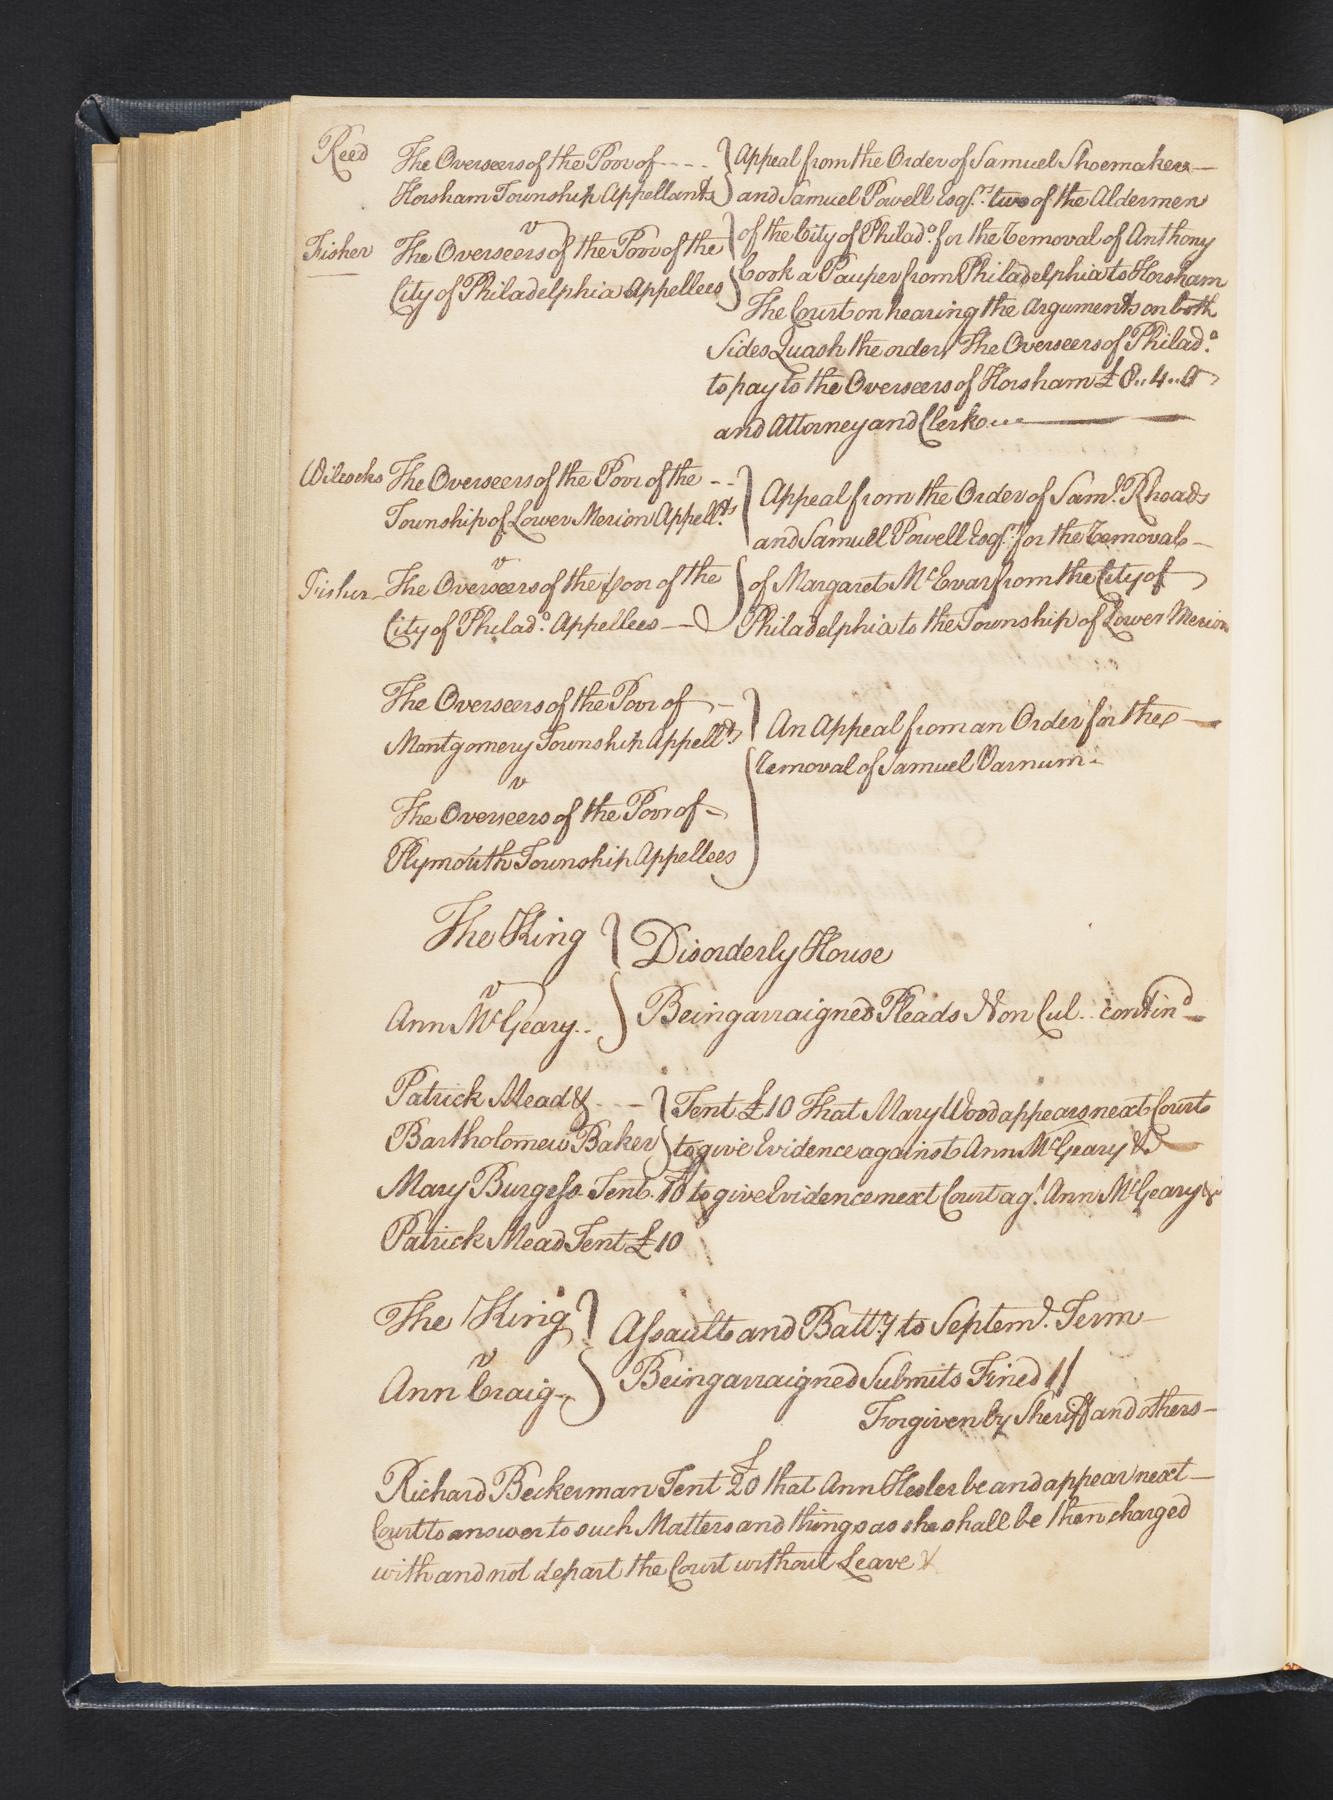 Reed
The Overseers of the Poor of
Horsham Township Appellants
v
Fisher
The Overseers of the Poor of the
City of Philadelphia Appellees
Appeal from the Order of Samuel Shoemaker
and Samuel Powell Esqrs. two of the Aldermen
of the City of Philada. for the Removal of Anthony
Cook a Pauper from Philadelphia to Horsham
The Court on hearing the Arguments on both
Sides Quash the order, The Overseers of Philada.
to pay to the Overseers of Horsham £8..4..0
and Attorney and Clerk
Wilcocks
The Overseers of the Poor of the
Township of Lower Merion Appellts.
v
Fisher
The Overseers of the Poor of the
City of Philada. Appellees
Appeal from the Order of Saml. Rhoads
and Samuel Powell Esqrs. for the Removal
of Margaret McEvar from the City of
Philadelphia to the Township of Lower Merion
The Overseers of the Poor of
Montgomery Township Appellts.
v
The Overseers of the Poor of
Plymouth Township Appellees
An Appeal from an Order for the
Removal of Samuel Varnum
The King
v
Ann McGeary
Disorderly House
Being arraigned Pleads Non Cul. contind
Patrick Mead &
Bartholomew Baker
Tent £10 That Mary Wood appears next Court
to give Evidence against Ann McGeary &
Mary Burgess Tent. 10 to give Evidence next Court agt. Ann McGeary &
Patrick Mead Tent £10
The King
v
Ann Craig
Assault and Batty to Septemr. Term
Being arraigned Submits Fined 1/
Forgiven by Sheriff and others
Richard Beckerman Tent £20 that Ann Hesler be and appear next
Court to answer to such Matters and things as she shall be then charged
with and not depart the Court without Leave &